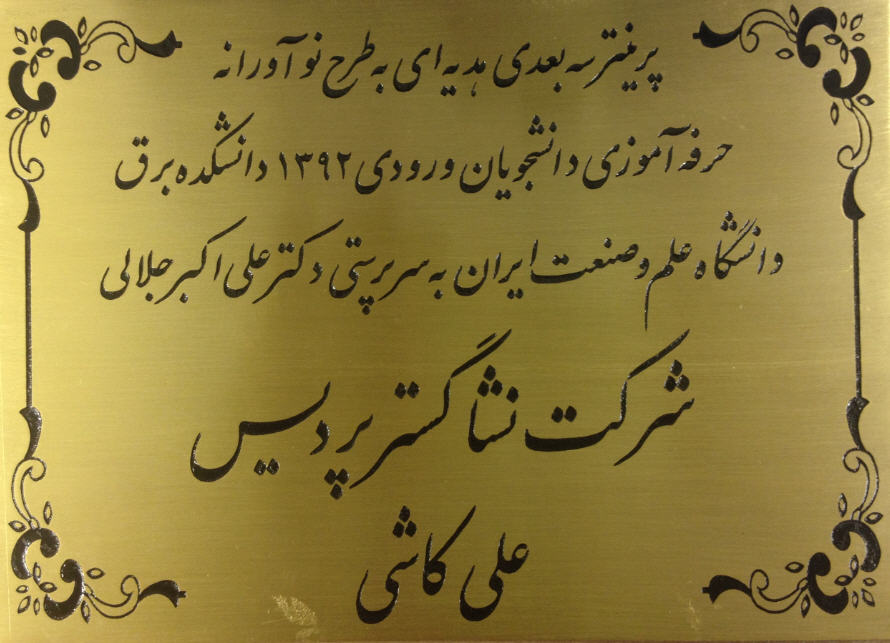 پرینتر سه بعدی هدیه ای به طرح نوآورانه
حرفه آموزی دانشجویان ورودی ۱۳۹۲ دانشکده برق
دانشگاه علم و صنعت ایران به سرپرستی دکتر علی اکبر جلالی
شرکت نشا گستر پردیس
علی کاشی